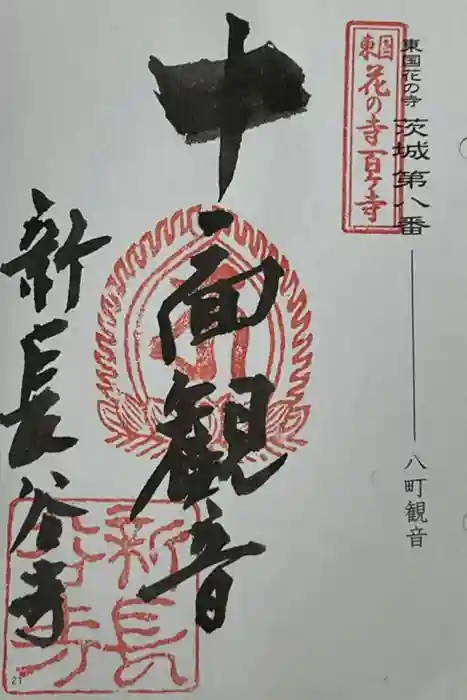 東国花の寺 茨城第八番 ── 八町観音
東国花の寺百ヶ寺
十一面観音
新長谷寺
新長谷寺
21